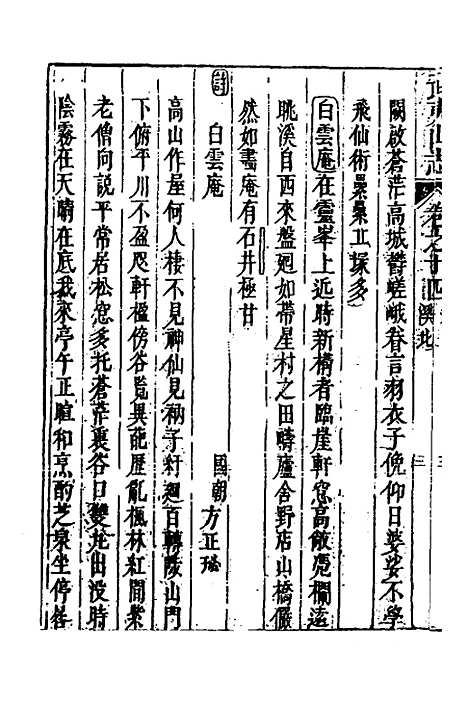 武夷山志 卷之十四 溪北
闕啟蒼茫高城鬱嵯峨眷言羽衣子俛仰日婆娑不學
飛仙術纍纍丘塚多
白雲庵在靈峯上近時新搆者臨崖軒窓高敞憑欄遠
眺溪自西來盤廻如帶星村之田疇廬舍野店山橋儼
然如畫庵有石井極甘
詩
白雲庵 國朝方正瑗
高山作屋何人棲不見神仙見衲子紆廻百轉陵山門
下俯平川不盈咫軒楹傍谷覧異
歷亂楓林紅間紫
老僧向說平常居松窓多托蒼茫裏谷口雙龙出没時
陰霧在天晴在底我來亭午正暄和烹酌芝泉坐停